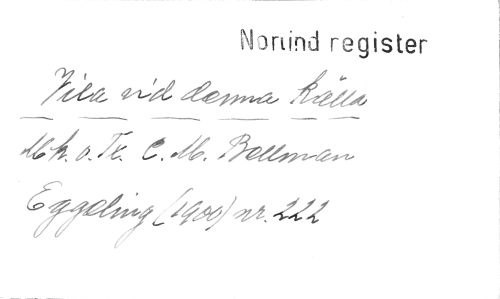 Norlind register
Vila vid denna källa
Mk. o. Tx. C. M. Bellman
Eggeling (1900) nr. 222